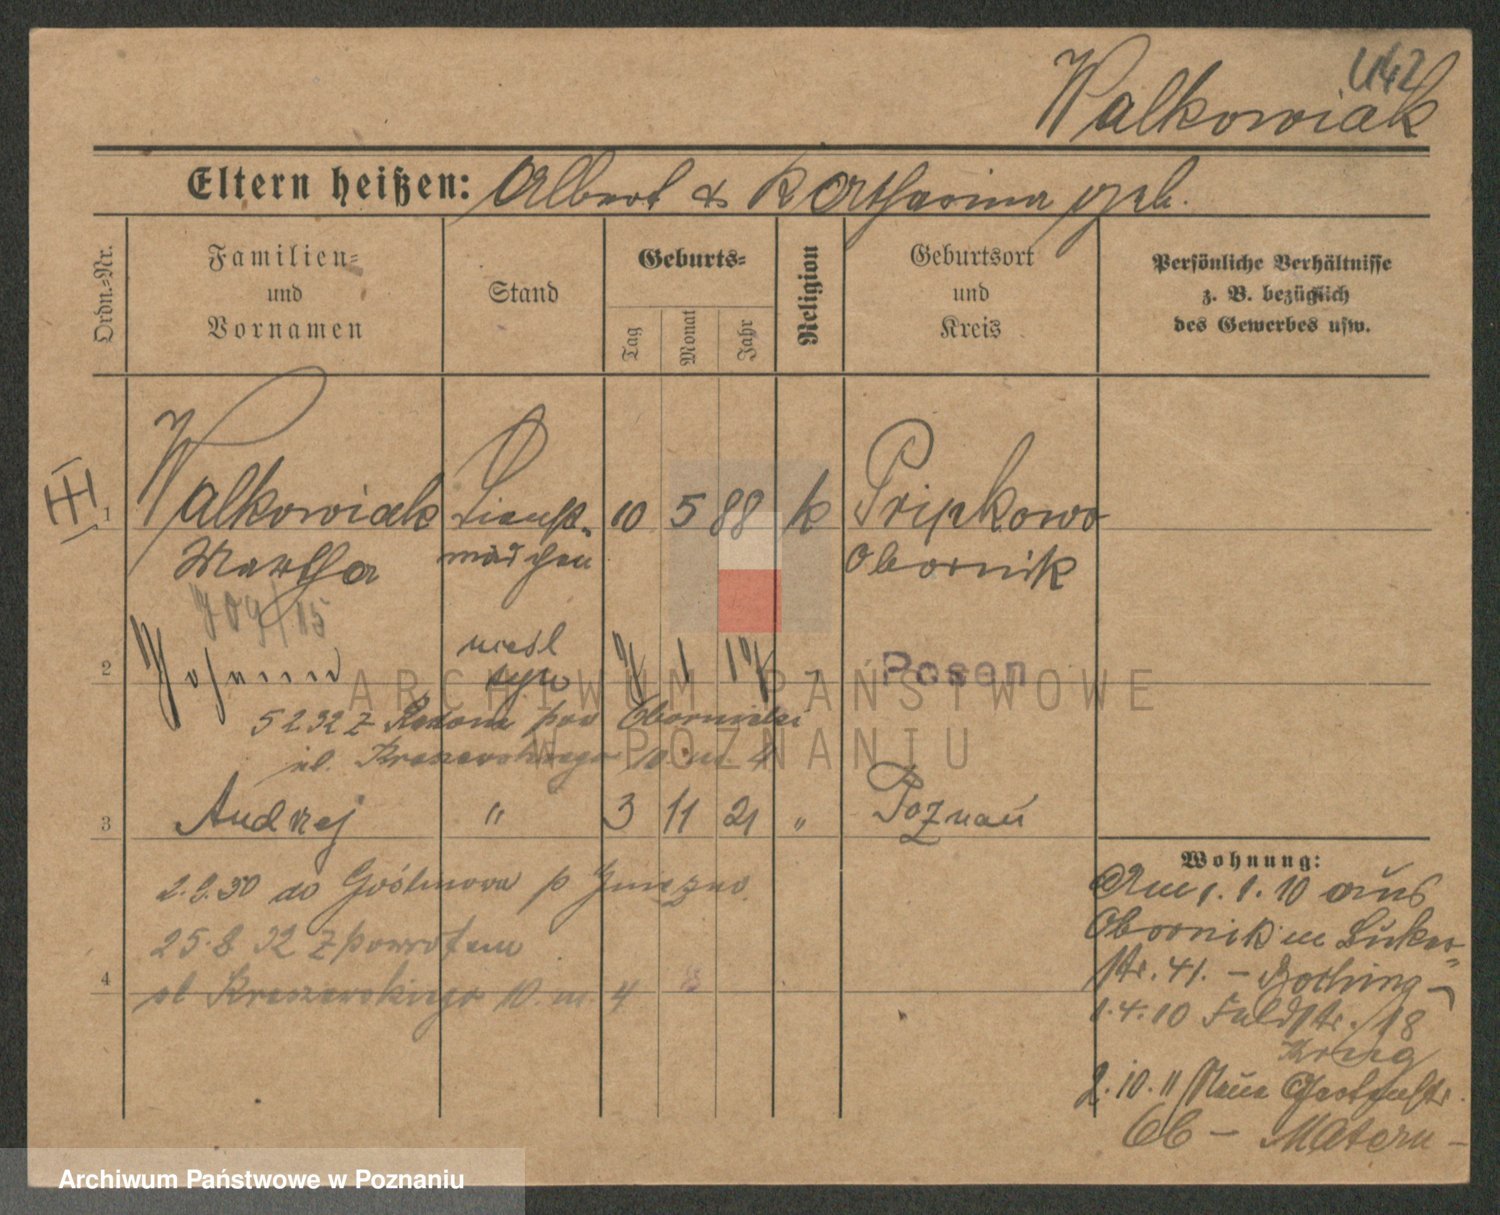 142
Walkowiak
Eltern heißen: Albert & Katharina geb.
Ordn.-Nr.
Familien- und Vornamen
Stand
Geburts-
Tag
Monat
Jahr
Religion
Geburtsort und Kreis
Persönliche Verhältnisse z. B. bezüglich des Gewerbes usw.
1 Walkowiak Dienst- 10 5 88 k Pripkowo
Martha mädchen Obornik
709/15
2 Johann niesl
syn 1 Posen
5 2 32 z pow Obornicki
ul. Kraszewskiego 10 m. 4
3 Andrzej " 3 11 21 " Poznań
2.2.30 do p Gniezno
25.8 32 z powrotem
4 ul Kraszewskiego 10 m. 4
Wohnung:
Am 1.1.10 aus
Obornik
str. 41. –
1.4.10 Feldstr. 18
Krieg
2.10.11 Neue Gartenstr.
66 – Matern –
ARCHIWUM PAŃSTWOWE
W POZNANIU
Archiwum Państwowe w Poznaniu